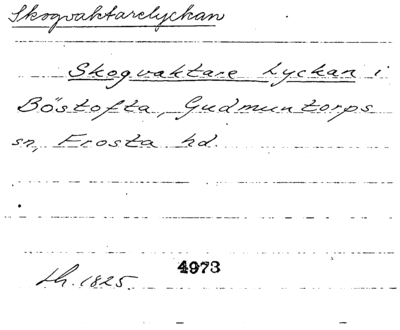 Skogvaktarelyckan
Skogvaktare Lyckan i
Böstofta, Gudmuntorps
sn, Frosta hd.
4973
Lh. 1825.